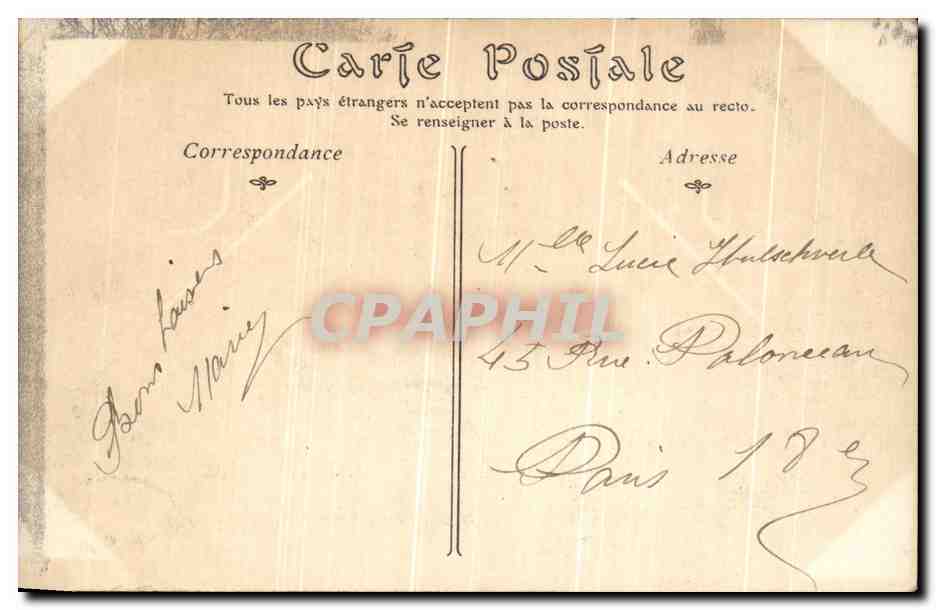 Carte Postale
Tous les pays étrangers n'acceptent pas la correspondance au recto.
Se renseigner à la poste.
Correspondance
Adresse
Bons baisers
Marie
Mlle Lucie
45 Rue Polonceau
Paris 18e
CPAPHIL